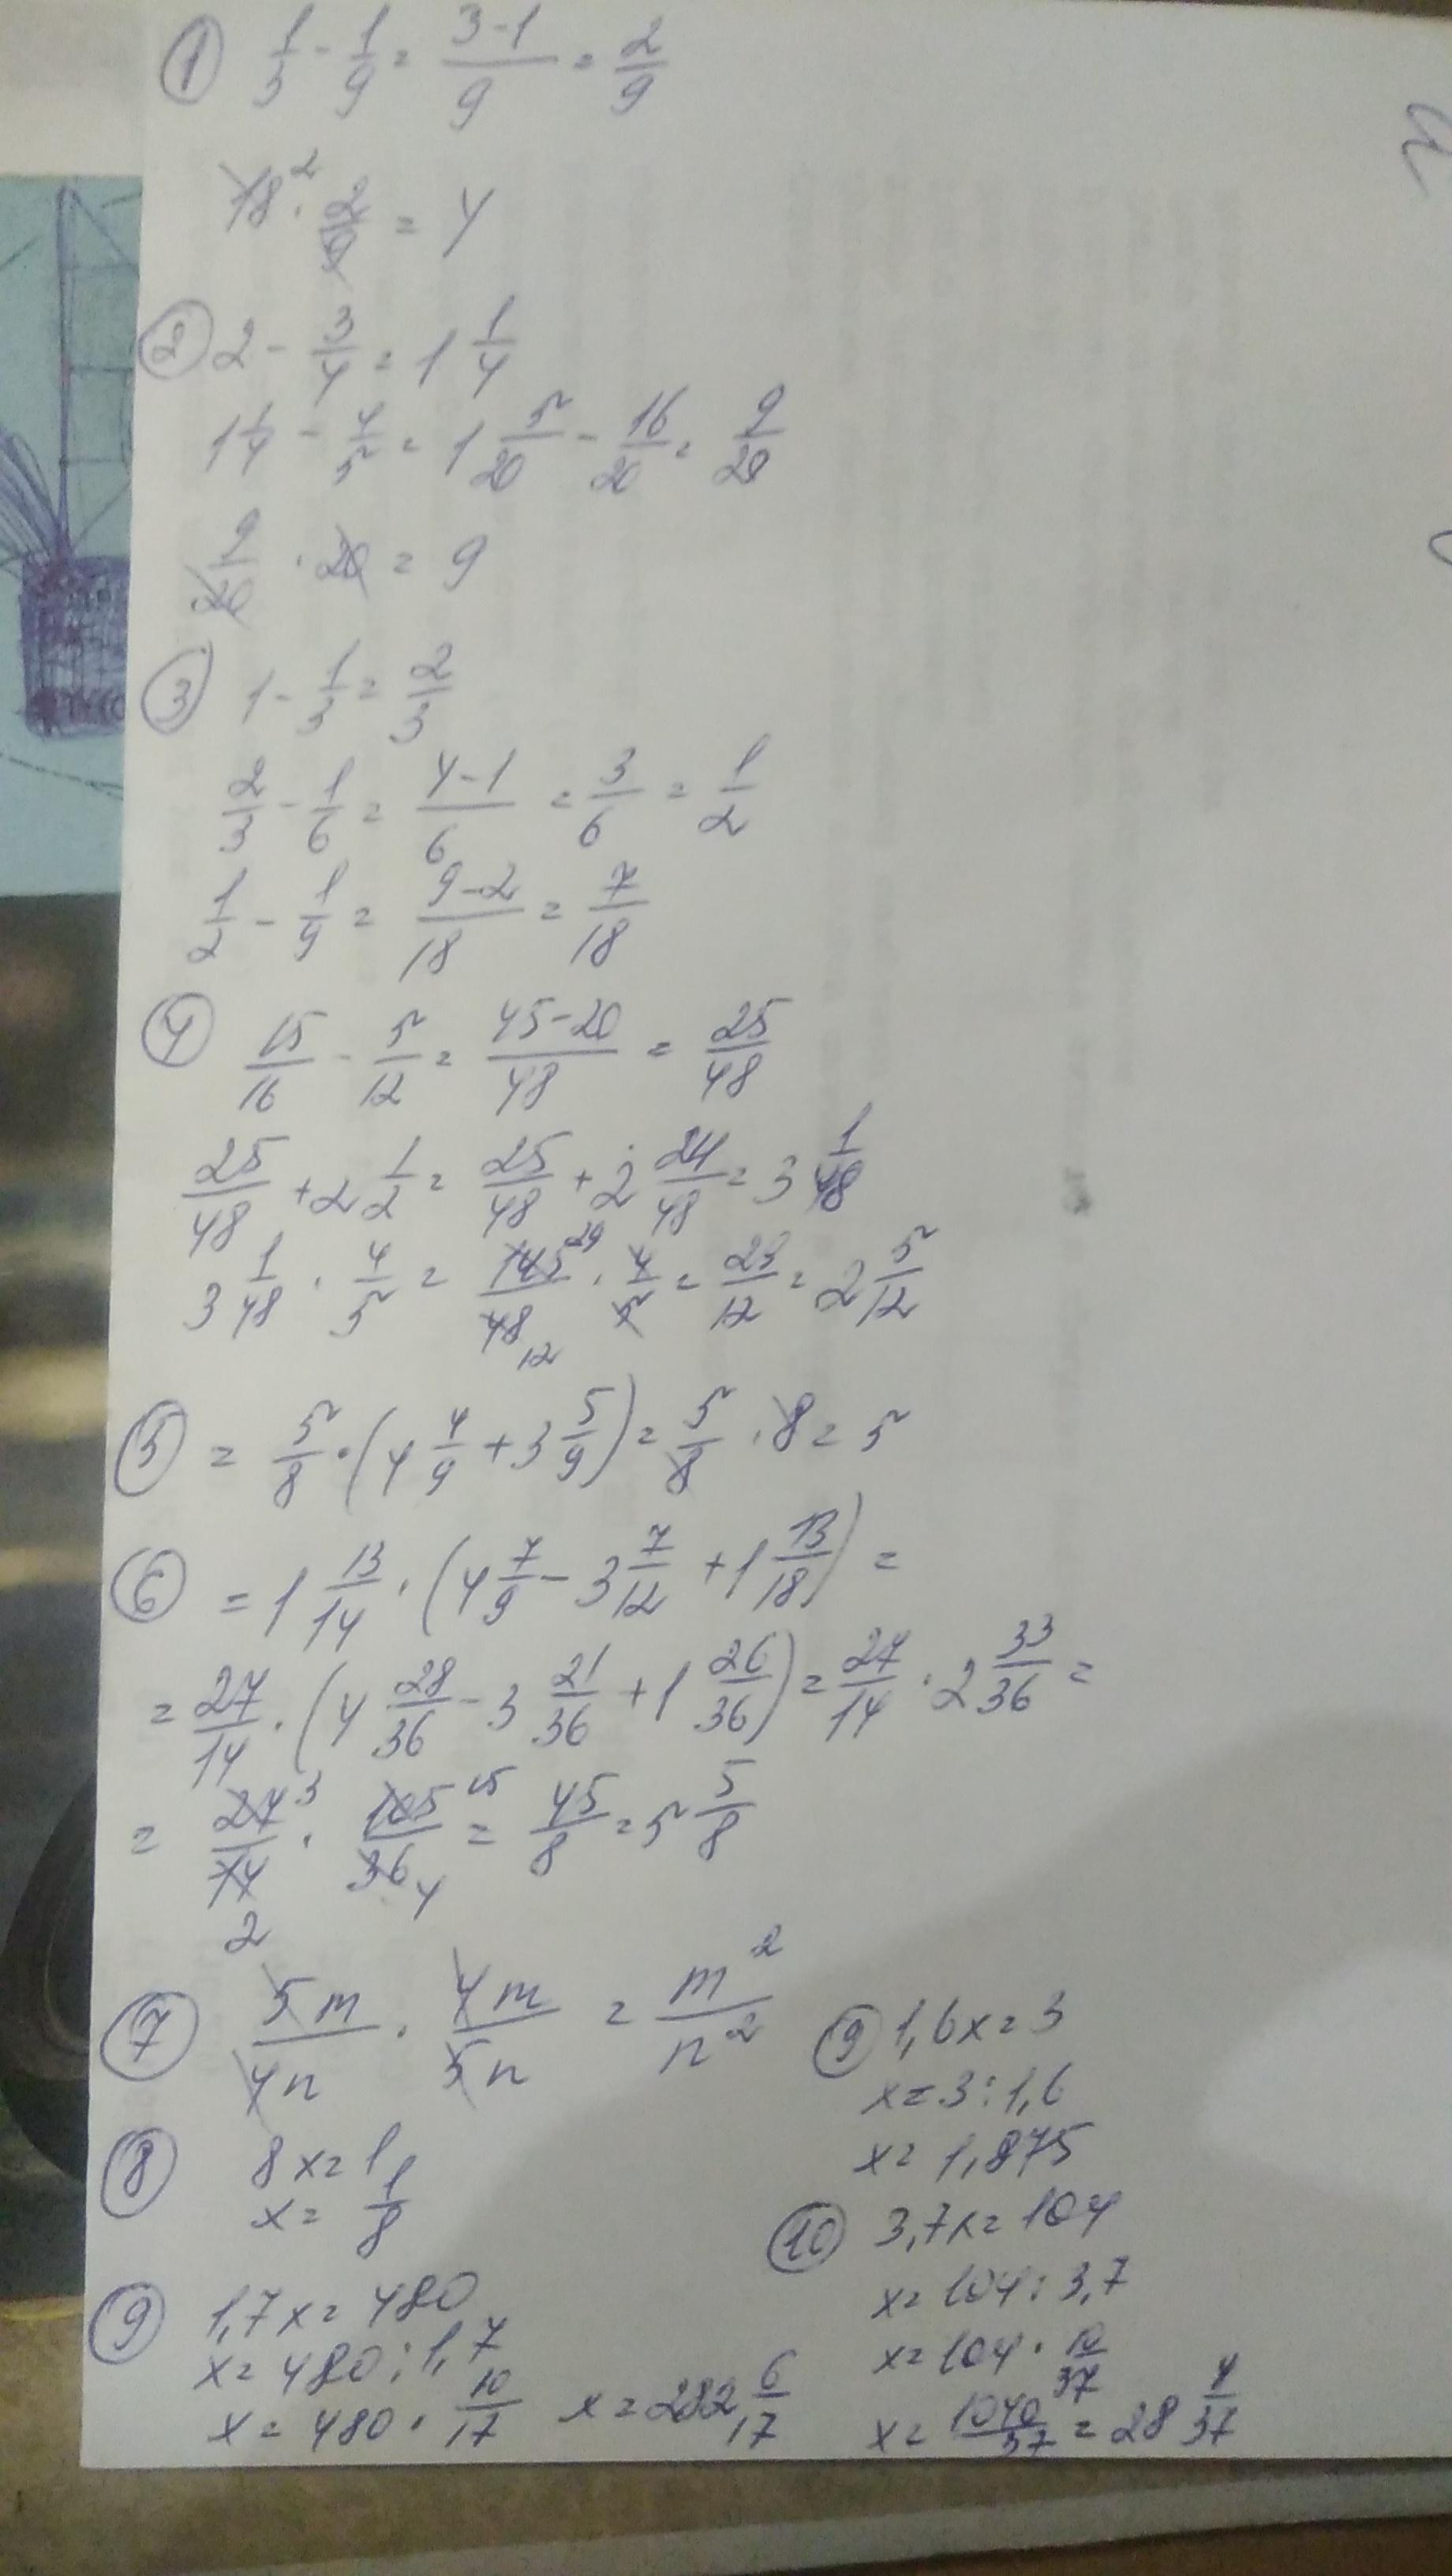 ① 1/3 - 1/9 = (3-1)/9 = 2/9
18² · 2/9 = 4
② 2 - 3/4 = 1 1/4
1 1/4 - 4/5 = 1 5/20 - 16/20 = 9/20
9/20 · 20 = 9
③ 1 - 1/3 = 2/3
2/3 - 1/6 = (4-1)/6 = 3/6 = 1/2
1/2 - 1/9 = (9-2)/18 = 7/18
④ 15/16 - 5/12 = (45-20)/48 = 25/48
25/48 + 2 1/2 = 25/48 + 2 24/48 = 3 1/48
3 1/48 · 4/5 = 145 29/48 12 · 4/5 = 29/12 = 2 5/12
⑤ = 5/8 · (4 4/9 + 3 5/9) = 5/8 · 8 = 5
⑥ = 1 13/14 · (4 7/9 - 3 7/12 + 1 13/18) =
= 27/14 · (4 28/36 - 3 21/36 + 1 26/36) = 27/14 · 2 33/36 =
= 27 3/14 2 · 105 15/36 4 = 45/8 = 5 5/8
⑦ 5m/4n · 4m/5n = m²/n²
⑧ 8x = 1
x = 1/8
⑨ 1,7x = 480
x = 480 : 1,7
x = 480 · 10/17 x = 282 6/17
⑨ 1,6x = 3
x = 3 : 1,6
x = 1,875
⑩ 3,7x = 104
x = 104 : 3,7
x = 104 · 10/37
x = 1040/37 = 28 4/37